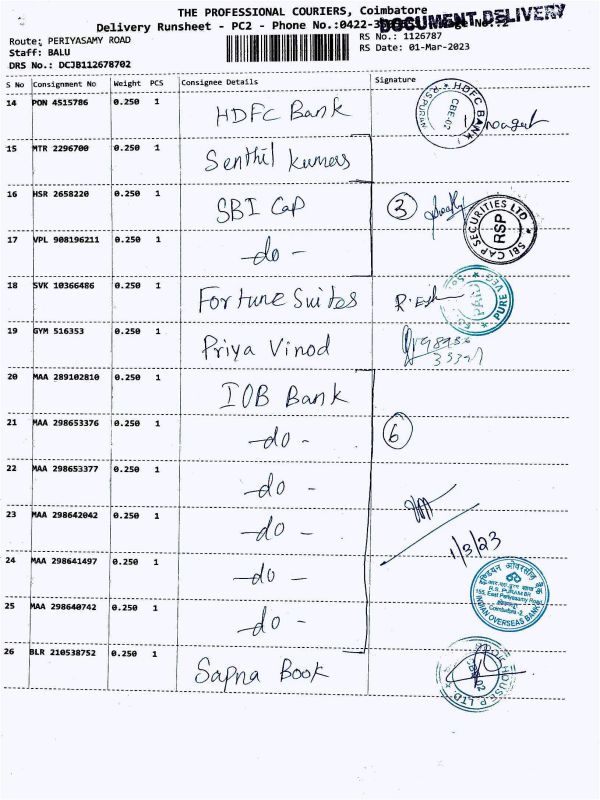 THE PROFESSIONAL COURIERS, Coimbatore
Delivery Runsheet - PC2 - Phone No.:0422-3
DOCUMENT DELIVERY
Route: PERIYASAMY ROAD
RS No.: 1126787
Staff: BALU
RS Date: 01-Mar-2023
DRS No.: DCJB112678702
S No Consignment No Weight PCS Consignee Details Signature
14 PON 4515786 0.250 1 HDFC Bank
HDFC BANK
CBE-02
15 MTR 2296700 0.250 1 Senthil Kumar
16 HSR 2658220 0.250 1 SBI Cap 3
SBI CAP SECURITIES LTD
RSP
17 VPL 908196211 0.250 1 -do-
18 SVK 10366486 0.250 1 Fortune Suites
PURE VEG
19 GYM 516353 0.250 1 Priya Vinod
20 MAA 289102810 0.250 1 IOB Bank
21 MAA 298653376 0.250 1 -do- 6
22 MAA 298653377 0.250 1 -do-
23 MAA 298642042 0.250 1 -do-
1/3/23
24 MAA 298641497 0.250 1 -do-
इण्डियन ओवरसीज़ बैंक
R.S. PURAM BR
155, East Periyasamy Road,
Coimbatore -2
INDIAN OVERSEAS BANK
25 MAA 298640742 0.250 1 -do-
26 BLR 210538752 0.250 1 Sapna Book
HOUSE P LTD